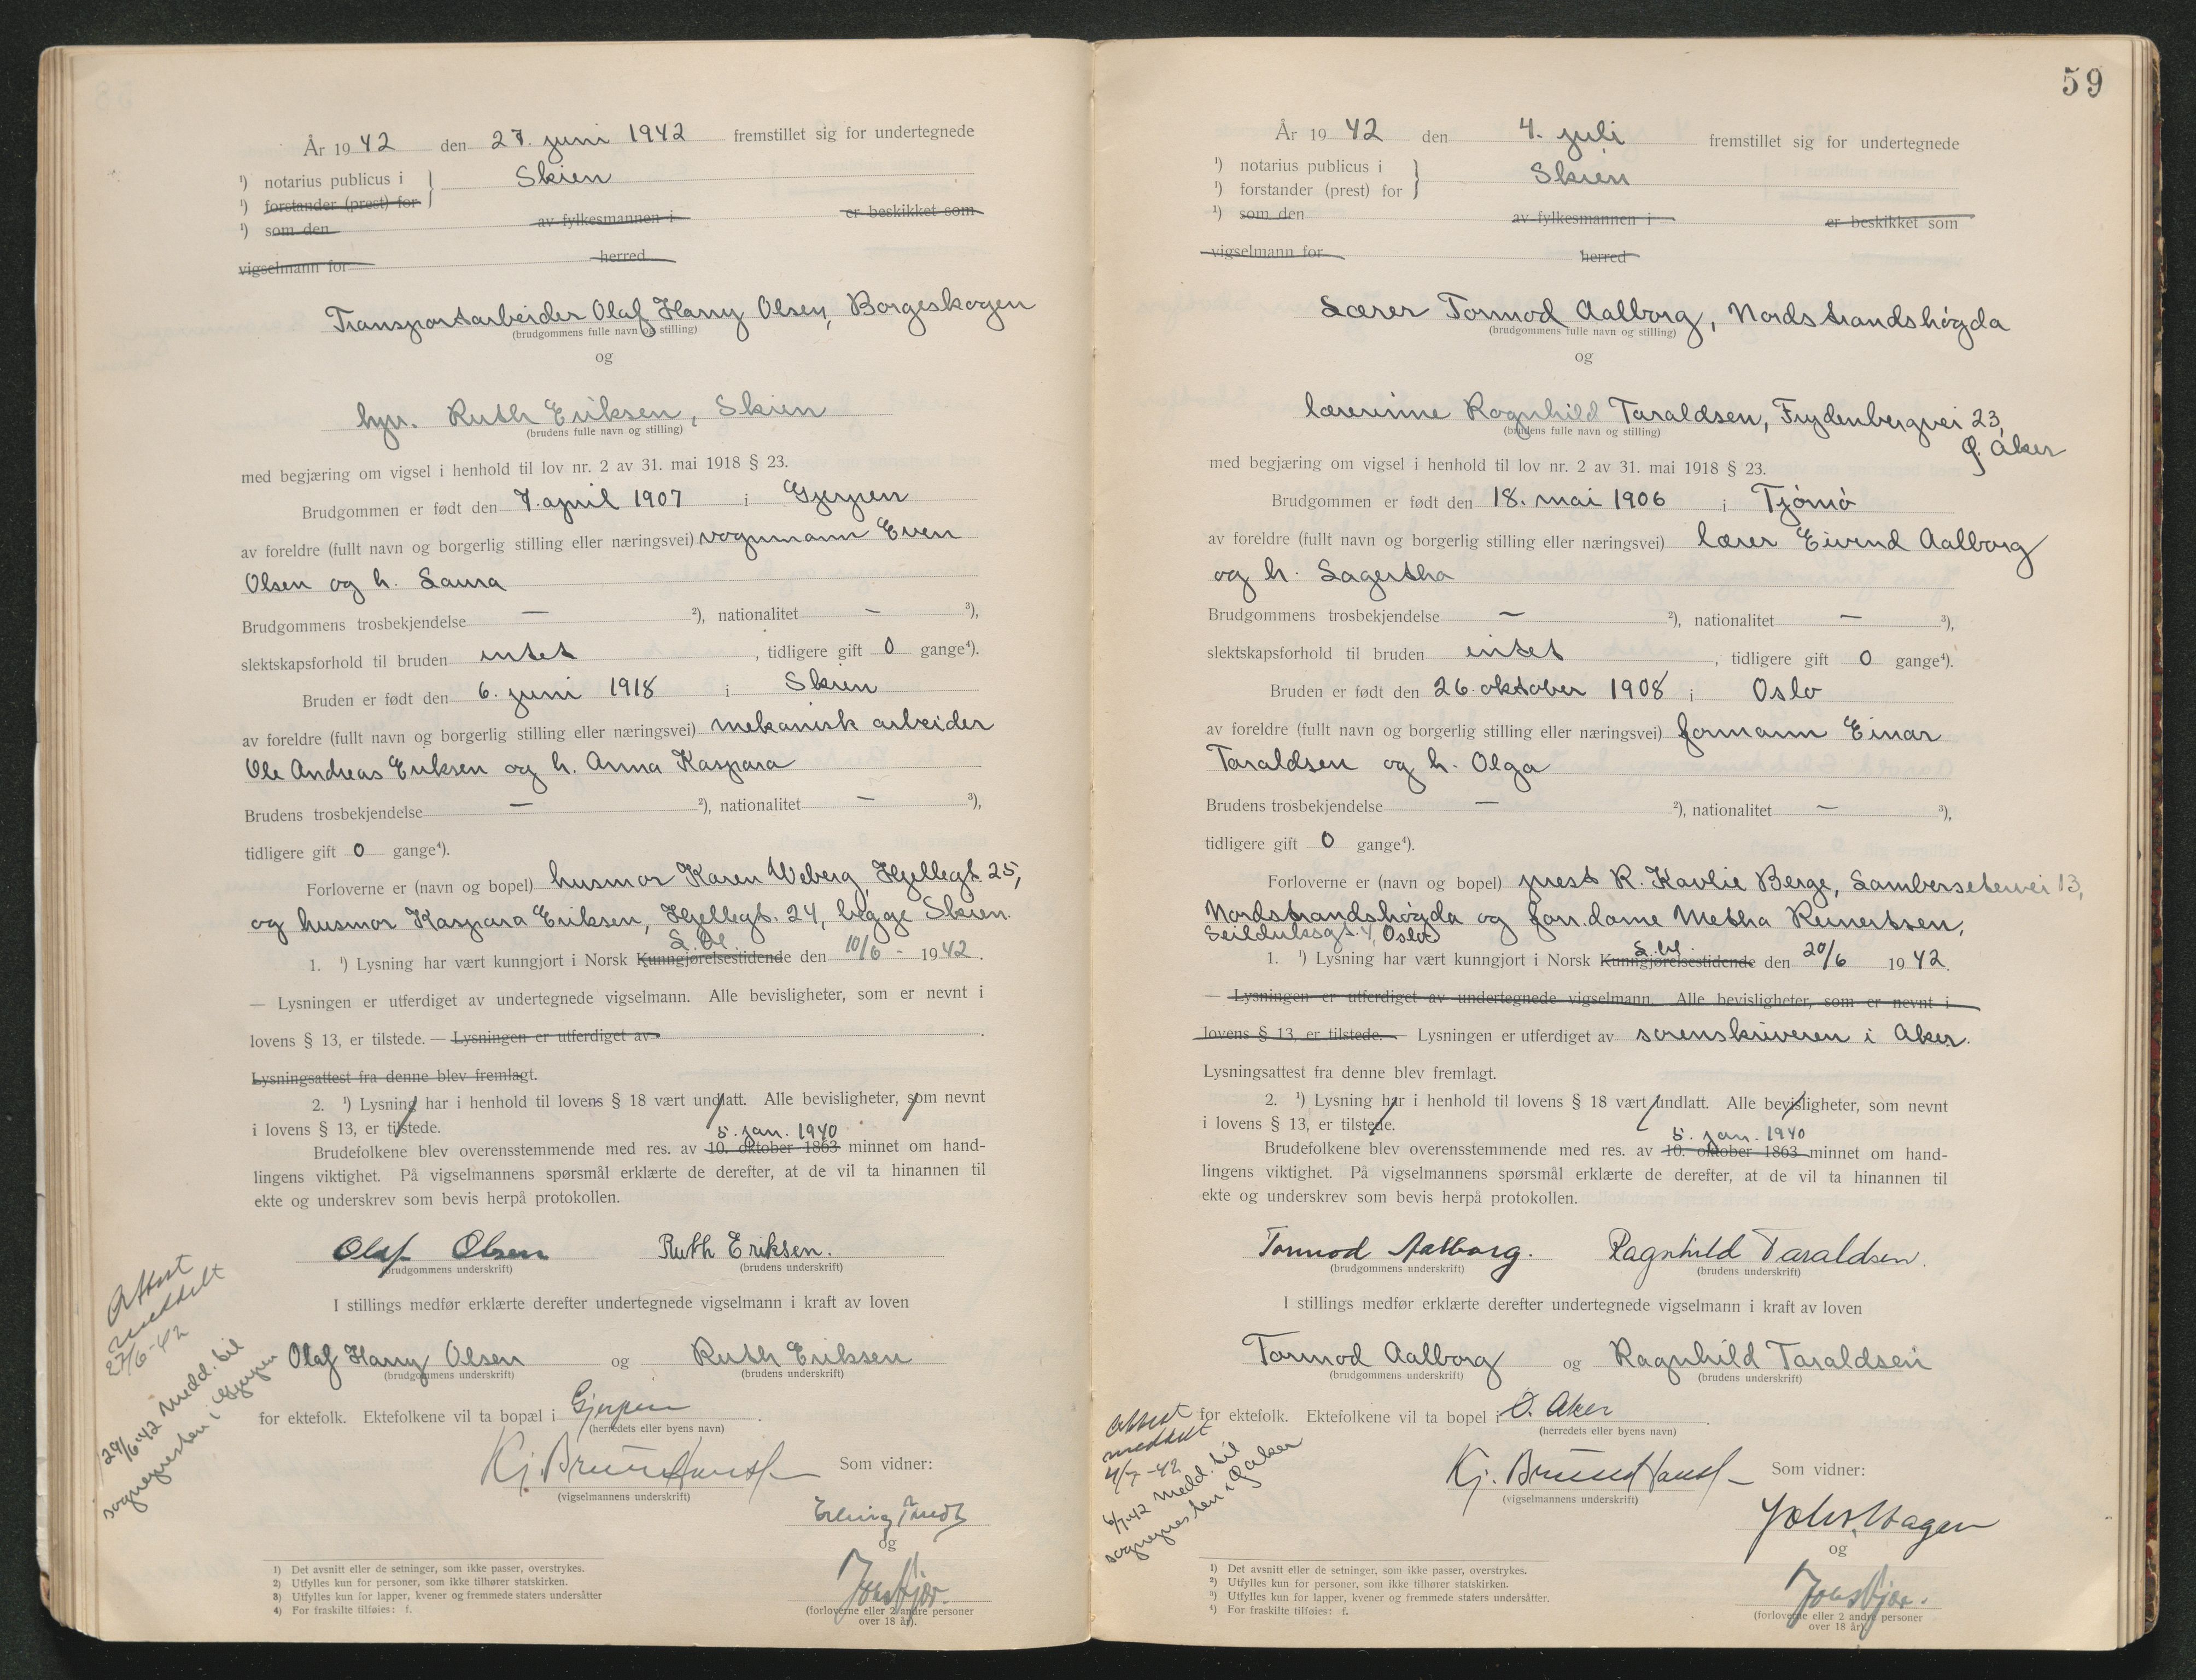 År 1942 den 27. juni 1942 fremstillet sig for undertegnede
¹) notarius publicus i } Skien
¹) forstander (prest) for
¹) som den av fylkesmannen i er beskikket som
vigselmann for herred
Transportarbeider Olaf Harry Olsen, Borgeskogen
(brudgommens fulle navn og stilling)
og
hgr. Ruth Eriksen, Skien
(brudens fulle navn og stilling)
med begjæring om vigsel i henhold til lov nr. 2 av 31. mai 1918 § 23.
Brudgommen er født den 7. april 1907 i Gjerpen
av foreldre (fullt navn og borgerlig stilling eller næringsvei) vognmann Even
Olsen og h. Laura
Brudgommens trosbekjendelse — ²), nationalitet — ³),
slektskapsforhold til bruden intet, tidligere gift 0 gange⁴).
Bruden er født den 6. juni 1918 i Skien
av foreldre (fullt navn og borgerlig stilling eller næringsvei) mekanisk arbeider
Ole Andreas Eriksen og h. Anna Kaspara
Brudens trosbekjendelse — ²), nationalitet — ³),
tidligere gift 0 gange⁴).
Forloverne er (navn og bopel) husmor Karen Weberg, Hjellegt. 25,
og husmor Kaspara Eriksen, Hjellegt. 24, begge Skien.
S. bl.
1. ¹) Lysning har vært kunngjort i Norsk Kunngjørelsestidende den 10/6 - 1942.
— Lysningen er utferdiget av undertegnede vigselmann. Alle bevisligheter, som er nevnt i
lovens § 13, er tilstede. — Lysningen er utferdiget av .
Lysningsattest fra denne blev fremlagt.
2. ¹) Lysning har i henhold til lovens § 18 vært undlatt. Alle bevisligheter, som nevnt
i lovens § 13, er tilstede.
5. jan. 1940
Brudefolkene blev overensstemmende med res. av 10. oktober 1863 minnet om hand-
lingens viktighet. På vigselmannens spørsmål erklærte de derefter, at de vil ta hinannen til
ekte og underskrev som bevis herpå protokollen.
Olaf Olsen Ruth Eriksen.
(brudgommens underskrift) (brudens underskrift)
I stillings medfør erklærte derefter undertegnede vigselmann i kraft av loven
Olaf Harry Olsen og Ruth Eriksen
(brudgommens underskrift) (brudens underskrift)
for ektefolk. Ektefolkene vil ta bopæl i Gjerpen.
(herredets eller byens navn)
Kj. Som vidner:
(vigselmannens underskrift)
Erling
og
(forloverne eller 2 andre personer
over 18 år).
Attest
meddelt
27/6-42
29/6-42 Medd. til
sognepresten i Gjerpen
1) Det avsnitt eller de setninger, som ikke passer, overstrykes.
2) Utfylles kun for personer, som ikke tilhører statskirken.
3) Utfylles kun for lapper, kvener og fremmede staters undersåtter
4) For fraskilte tilføies: f.
59
År 1942 den 4. juli fremstillet sig for undertegnede
¹) notarius publicus i } Skien
¹) forstander (prest) for
¹) som den av fylkesmannen i er beskikket som
vigselmann for herred
Lærer Tormod Aalborg, Nordstrandshøgda
(brudgommens fulle navn og stilling)
og
lærerinne Ragnhild Taraldsen, Frydenbergvei 23,
Ø. Aker
(brudens fulle navn og stilling)
med begjæring om vigsel i henhold til lov nr. 2 av 31. mai 1918 § 23.
Brudgommen er født den 18. mai 1906 i Tjømø
av foreldre (fullt navn og borgerlig stilling eller næringsvei) lærer Eivind Aalborg
og h. Lagertha
Brudgommens trosbekjendelse — ²), nationalitet — ³),
slektskapsforhold til bruden intet, tidligere gift 0 gange⁴).
Bruden er født den 26. oktober 1908 i Oslo
av foreldre (fullt navn og borgerlig stilling eller næringsvei) formann Einar
Taraldsen og h. Olga
Brudens trosbekjendelse — ²), nationalitet — ³),
tidligere gift 0 gange⁴).
Forloverne er (navn og bopel) prest R. Kavlie Berge, Lambersetervei 13,
Nordstrandshøgda og forr.dame Metha Reinertsen,
Seilduksgt. 4, Oslo
S. bl.
1. ¹) Lysning har vært kunngjort i Norsk Kunngjørelsestidende den 20/6 1942.
— Lysningen er utferdiget av undertegnede vigselmann. Alle bevisligheter, som er nevnt i
lovens § 13, er tilstede. — Lysningen er utferdiget av sorenskriveren i Aker.
Lysningsattest fra denne blev fremlagt.
2. ¹) Lysning har i henhold til lovens § 18 vært undlatt. Alle bevisligheter, som nevnt
i lovens § 13, er tilstede.
5. jan. 1940
Brudefolkene blev overensstemmende med res. av 10. oktober 1863 minnet om hand-
lingens viktighet. På vigselmannens spørsmål erklærte de derefter, at de vil ta hinannen til
ekte og underskrev som bevis herpå protokollen.
Tormod Aalborg. Ragnhild Taraldsen.
(brudgommens underskrift) (brudens underskrift)
I stillings medfør erklærte derefter undertegnede vigselmann i kraft av loven
Tormod Aalborg og Ragnhild Taraldsen
(brudgommens underskrift) (brudens underskrift)
for ektefolk. Ektefolkene vil ta bopel i Ø. Aker.
(herredets eller byens navn)
Kj. Som vidner:
(vigselmannens underskrift)
Hagen
og
(forloverne eller 2 andre personer
over 18 år).
Attest
meddelt
4/7-42
6/7-42 Medd. til
sognepresten i Ø. Aker
1) Det avsnitt eller de setninger, som ikke passer, overstrykes.
2) Utfylles kun for personer, som ikke tilhører statskirken.
3) Utfylles kun for lapper, kvener og fremmede staters undersåtter.
4) For fraskilte tilføies: f.